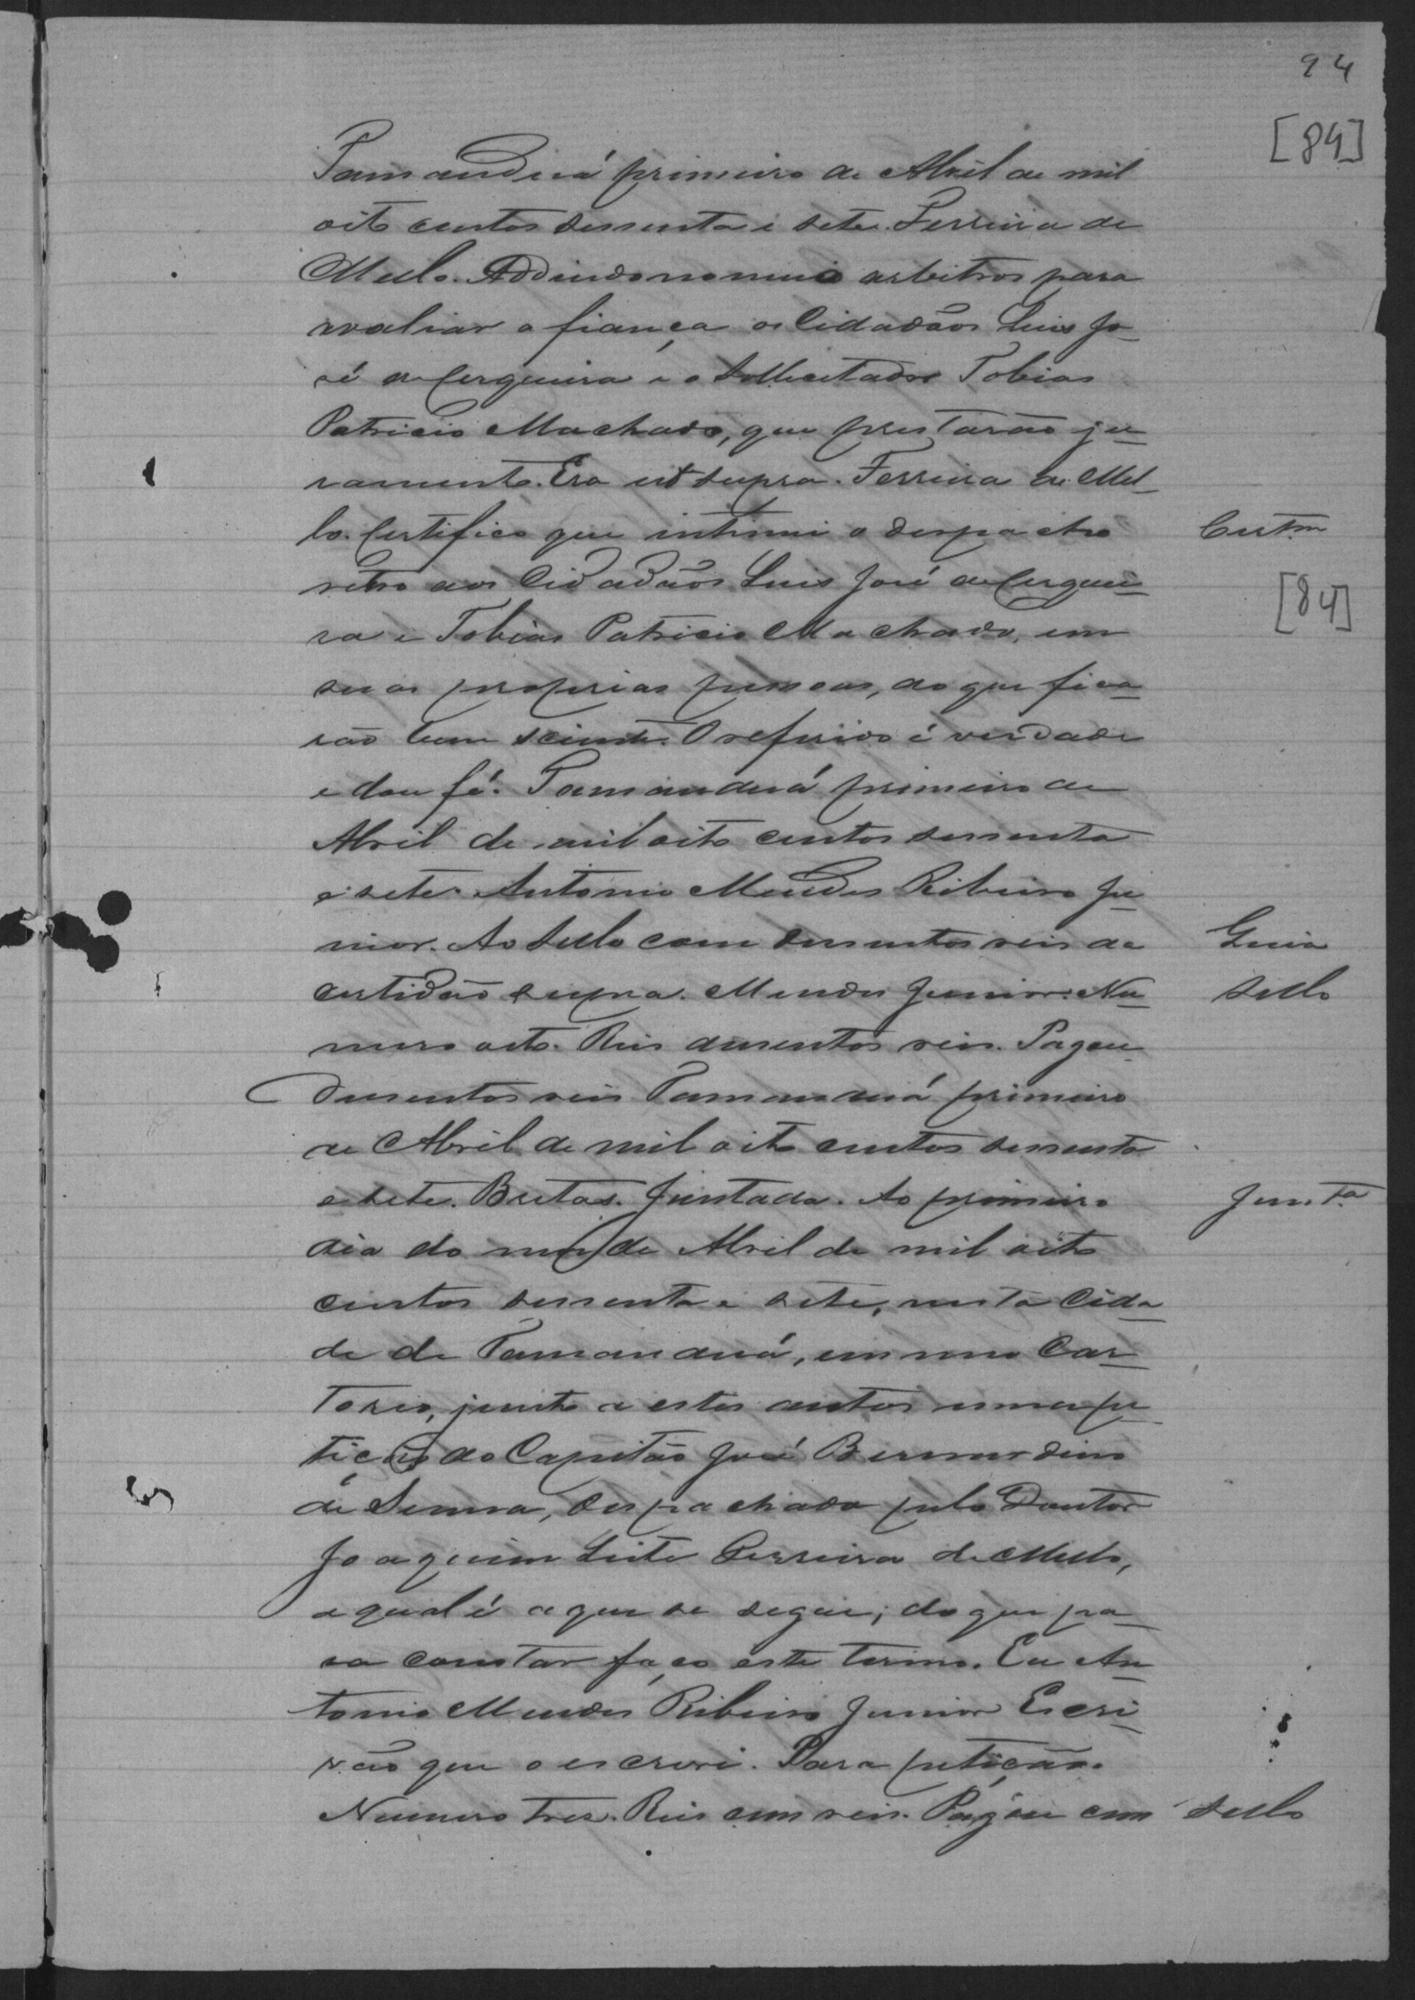 94
[84]
Tamanduá primeiro de Abril de mil
oito centos sessenta e sete. Ferreira de
Mello. Addindo nomeio arbitros para
avaliar a fiança os Cidadãos Luis Jo-
sé de Cerqueira e o Sollicitador Tobias
Patricio Machado, que prestarão ju-
ramento. Era ut supra. Ferreira de Mel-
lo. Certifico que intimei o despacho
Certam
retro aos Cidadãos Luis José de Cerquei-
ra e Tobias Patricio Machado, em
[84]
suas proprias pessoas, do que fica-
rão bem scientes. O referido é verdade
e dou fé. Tamanduá primeiro de
Abril de mil oito centos sessenta
e sete. Antonio Mendes Ribeiro Ju-
nior. Ao Sello com dusentos reis da
Guia
certidão supra. Mendes Junior. Nu-
Sello
mero oito. Reis dusentos reis. Pagou
dusentos reis Tamanduá primeiro
de Abril de mil oito centos sessenta
e sete. Bretas. Juntada. Ao primeiro
Junta
dia do mez de Abril de mil oito
centos sessenta e sete, nesta Cida-
de de Tamanduá, em meu Car-
torio, junto a estes autos uma pe-
tição do Capitão José Bernardino
de Senna, despachada pelo Doutor
Joaquim Leite Ferreira de Mello,
a qual é a que se segue; do que pa-
ra constar faço este termo. Eu An-
tonio Mendes Ribeiro Junior Escri-
vão que o escrevi. Para petição.
Numero tres. Reis cem reis. Pagou cem
Sello